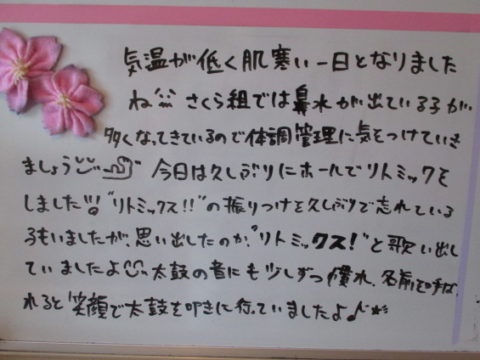 気温が低く肌寒い一日となりました
ね さくら組では鼻水が出ている子が
多くなってきているので体調管理に気をつけていき
ましょう 今日は久しぶりにホールでリトミックを
しました!! "リトミックス!!"の振りつけを久しぶりで忘れている
子もいましたが、思い出したのか、"リトミックス!"と歌い出し
ていましたよ 太鼓の音にも少しずつ慣れ、名前で呼ば
れると笑顔で太鼓を叩きに行っていましたよ♪